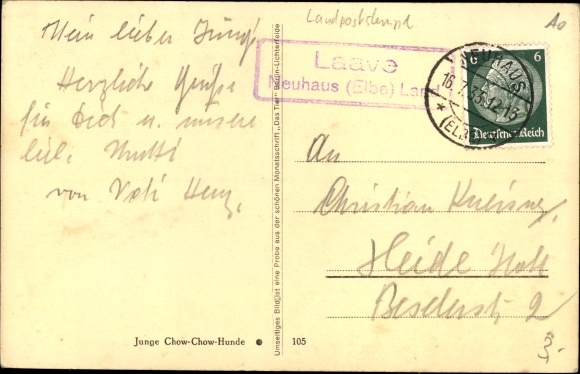 Mein lieber Junge
Herzliche Grüße
für Dich u. unsere
lieb. Mutti
von Vati Herz.
Junge Chow-Chow-Hunde
105
Umseitiges Bild ist eine Probe aus der schönen Monatsschrift „Das Tier" Berlin-Lichterfelde
Landpoststempel
Laave
Neuhaus (Elbe) Land
NEUHAUS
(ELBE)
6 6
Deutsches Reich
An
Christian
Heide Holst
2
3.-